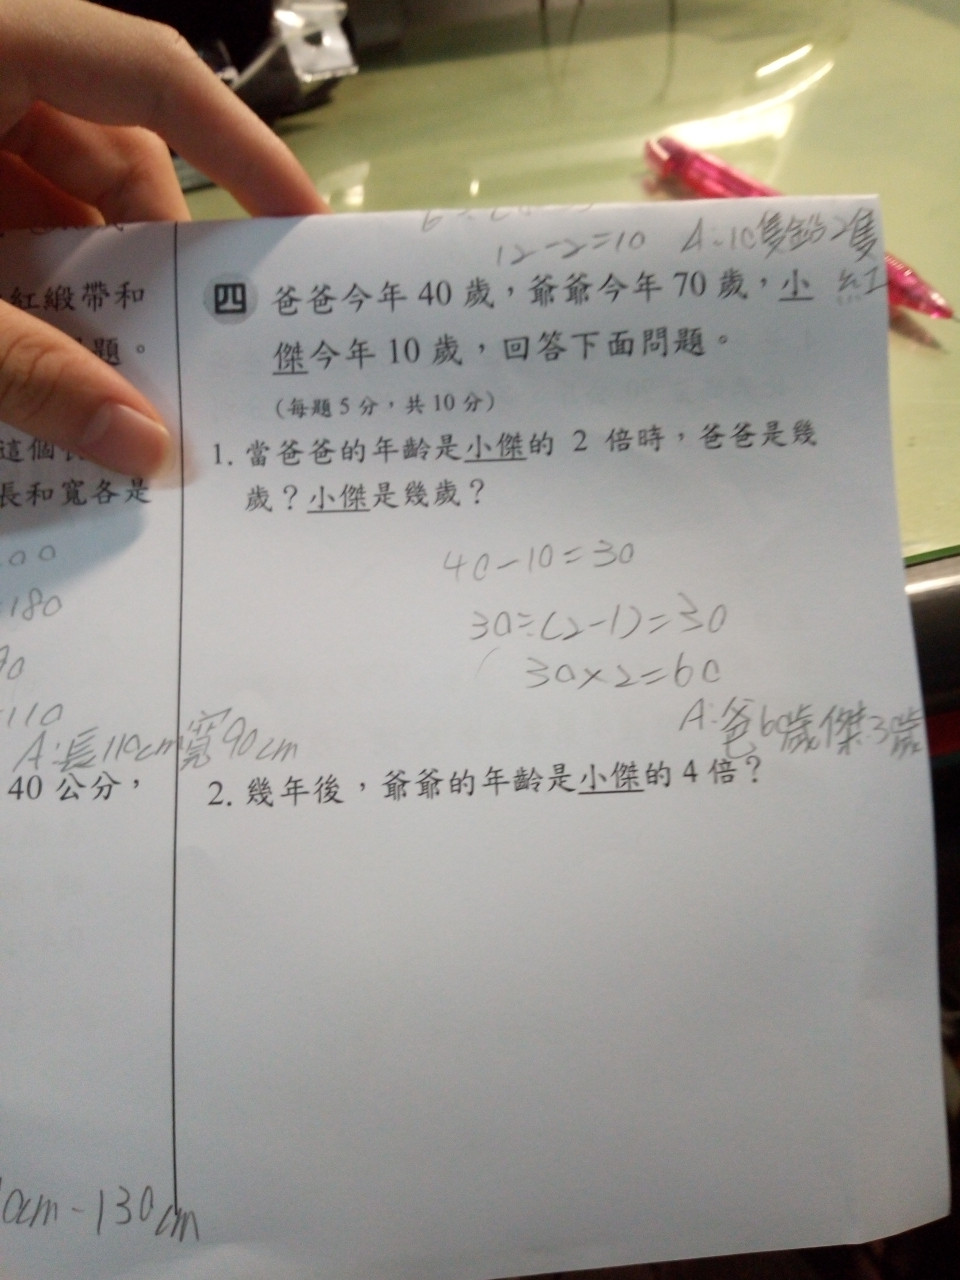 12-2=10 A:10隻鉛2隻
紅
紅緞帶和
題。
這個
長和寬各是
00
180
90
110
A:長110cm寬90cm
40 公分，
0cm-130cm
四 爸爸今年 40 歲，爺爺今年 70 歲，小
傑今年 10 歲，回答下面問題。
（每題 5 分，共 10 分）
1. 當爸爸的年齡是小傑的 2 倍時，爸爸是幾
歲？小傑是幾歲？
40-10=30
30÷(2-1)=30
30×2=60
A:爸60歲傑:3歲
2. 幾年後，爺爺的年齡是小傑的 4 倍？